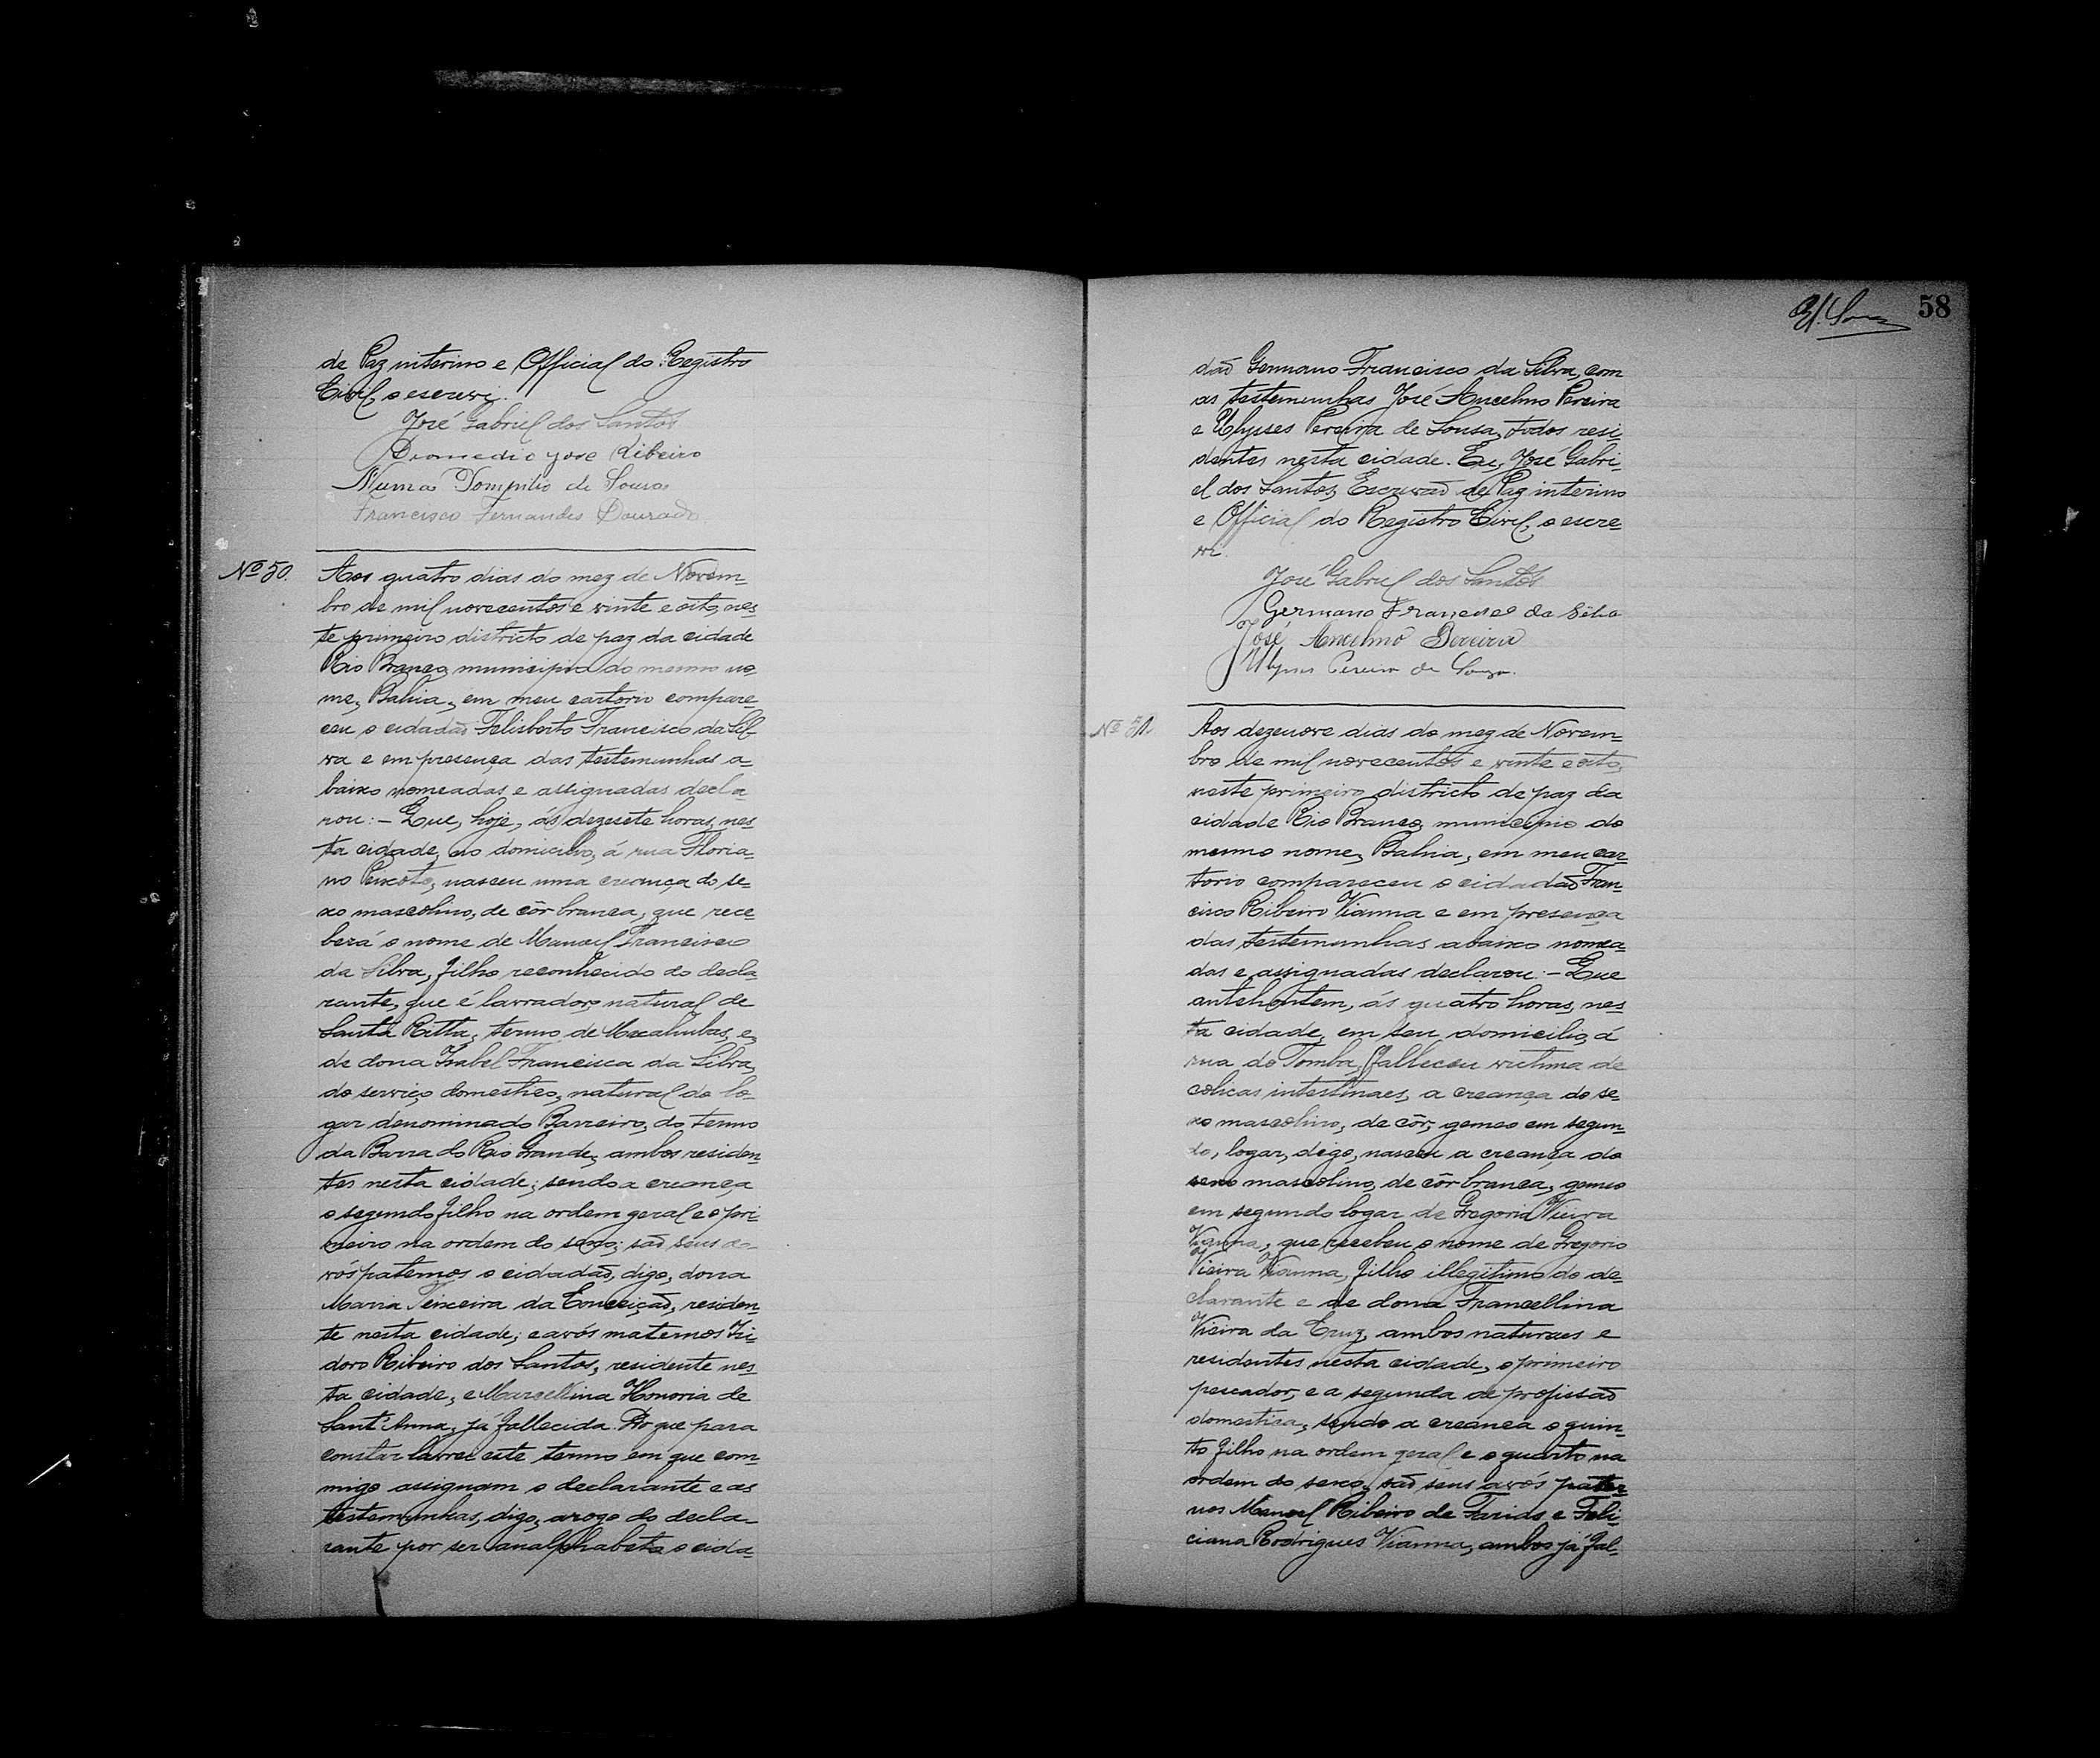 de Paz interino e Official do Registro
Civil, o escrevi.
José Gabriel dos Santos
Diomedio José Ribeiro
Numa Pompilio de Sousa
Francisco Fernandes Dourado
Nº 50.
Aos quatro dias do mez de Novem-
bro de mil novecentos e vinte e oito, nes-
te primeiro districto de paz da cidade
Rio Branco, municipio do mesmo no-
me, Bahia, em meu cartorio compare-
ceu o cidadão Felisberto Francisco da Sil-
va e em presença das testemunhas a-
baixo nomeadas e assignadas decla-
rou: - Que, hoje, ás dezesete horas, nes-
ta cidade, no domicilio, á rua Floria-
no Peixoto, nasceu uma creança do se-
xo mascolino, de côr branca, que rece-
berá o nome de Manoel Francisco
da Silva, filho reconhecido do decla-
rante, que é lavrador, natural de
Santa Ritta, termo de Macahubas, e,
de dona Izabel Francisca da Silva,
do serviço domestico, natural do lo-
gar denominado Barreiro, do termo
da Barra do Rio Grande, ambos residen-
tes nesta cidade; sendo a creança
o segundo filho na ordem geral e o pri-
meiro na ordem do sexo; são seus a-
vós paternos o cidadão, digo, dona
Maria Teixeira da Conceição, residen-
te nesta cidade; e avós maternos Izi-
doro Ribeiro dos Santos, residente nes-
ta cidade, e Marcellina Honoria de
Sant'Anna, já fallecida. Do que para
constar lavrei este termo em que com-
migo assignam o declarante e as
testemunhas, digo, a rogo do decla-
rante por ser analphabeto o cida-
58
dão Germano Francisco da Silva, com
as testemunhas José Ancelmo Pereira
e Ulysses Pereira de Sousa, todos resi-
dentes nesta cidade. Eu, José Gabri-
el dos Santos, Escrivão de Paz interino
e Official do Registro Civil, o escre-
vi.
José Gabriel dos Santos
Germano Francisco da Silva
José Ancelmo Pereira
Ulysses Pereira de Souza.
Nº 51.
Aos dezenove dias do mez de Novem-
bro de mil novecentos e vinte e oito,
neste primeiro districto de paz da
cidade Rio Branco, municipio do
mesmo nome, Bahia, em meu car-
torio compareceu o cidadão Fran-
cisco Ribeiro Vianna e em presença
das testemunhas abaixo nomea-
das e assignadas declarou: - Que
antehontem, ás quatro horas, nes-
ta cidade, em seu domicilio, á
rua do Tomba, falleceu victima de
colicas intestinaes, a creança do se-
xo mascolino, de côr, gemeo em segun-
do, logar, digo, nasceu a creança do
sexo mascolino, de côr branca, gemeo
em segundo logar de Gregoria Vieira
Vianna, que recebeu o nome de Gregorio
Vieira Vianna, filho illegitimo do de-
clarante e de dona Francellina
Vieira da Cruz, ambos naturaes e
residentes nesta cidade, o primeiro
pescador, e a segunda de profissão
domestica, sendo a creança o quin-
to filho na ordem geral e o quarto na
ordem do sexo, são seus avós pater-
nos Manoel Ribeiro de Farias e Feli-
ciana Rodrigues Vianna, ambos já fal-